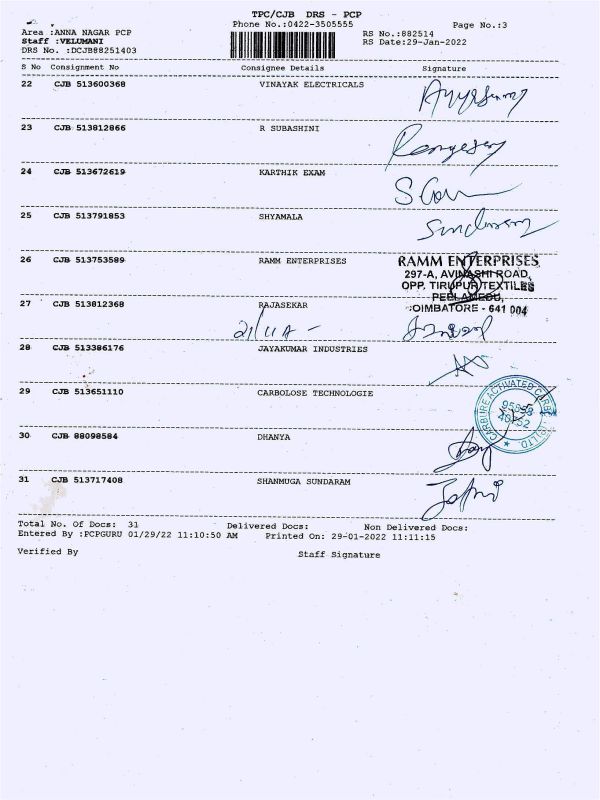 TPC/CJB DRS - PCP
Phone No.:0422-3505555 Page No.:3
Area :ANNA NAGAR PCP RS No.:882514
Staff :VELUMANI RS Date:29-Jan-2022
DRS No. :DCJB88251403
S No Consignment No Consignee Details Signature
22 CJB 513600368 VINAYAK ELECTRICALS
23 CJB 513812866 R SUBASHINI
24 CJB 513672619 KARTHIK EXAM
25 CJB 513791853 SHYAMALA
26 CJB 513753589 RAMM ENTERPRISES
RAMM ENTERPRISES
297-A, AVINASHI ROAD,
OPP. TIRUPUR TEXTILES
PEELAMEDU,
COIMBATORE - 641 004
27 CJB 513812368 RAJASEKAR
28 CJB 513386176 JAYAKUMAR INDUSTRIES
29 CJB 513651110 CARBOLOSE TECHNOLOGIE
30 CJB 88098584 DHANYA
31 CJB 513717408 SHANMUGA SUNDARAM
Total No. Of Docs: 31 Delivered Docs: Non Delivered Docs:
Entered By :PCPGURU 01/29/22 11:10:50 AM Printed On: 29-01-2022 11:11:15
Verified By Staff Signature